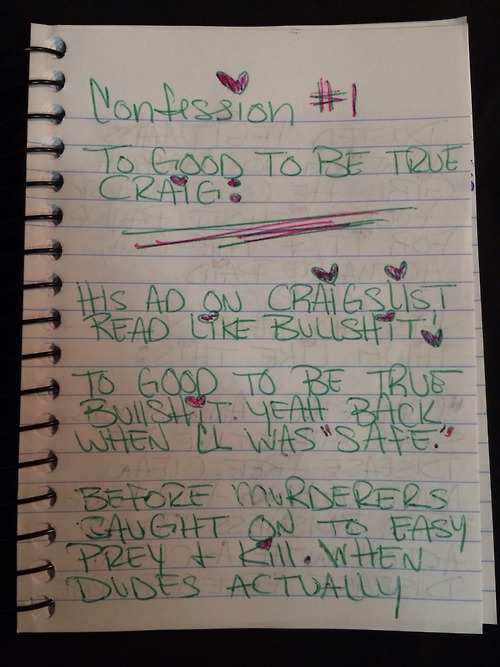 Confession #1
TO GOOD TO BE TRUE
CRAIG:
HIS AD ON CRAIGSLIST
READ LIKE BULLSHIT!
TO GOOD TO BE TRUE
BULLSHIT. YEAH BACK
WHEN CL WAS "SAFE."
BEFORE MURDERERS
CAUGHT ON TO EASY
PREY + KILL. WHEN
DUDES ACTUALLY